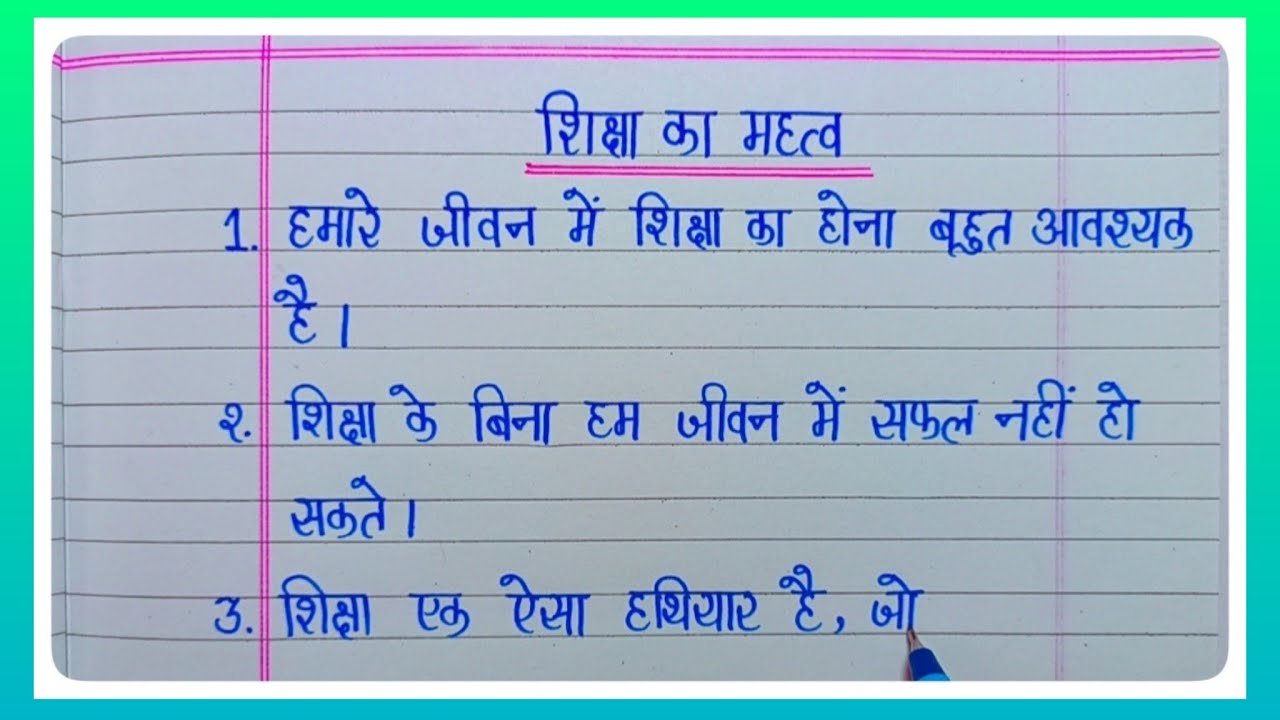 शिक्षा का महत्व
1. हमारे जीवन में शिक्षा का होना बहुत आवश्यक
है।
२. शिक्षा के बिना हम जीवन में सफल नहीं हो
सकते।
3. शिक्षा एक ऐसा हथियार है, जो